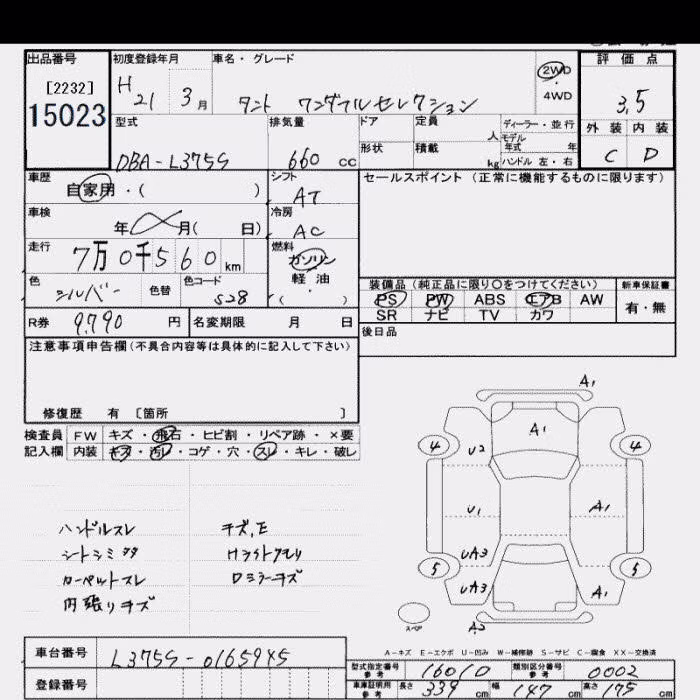 出品番号
[2232]
15023
初度登録年月
H 21 3月
車名・グレード
タント ワンダフルセレクション
2WD
・
4WD
評価点
3.5
外装 内装
C D
型式
DBA-L375S
排気量
660 cc
ドア
形状
定員 人
積載 kg
ディーラー・並行
モデル年式 年
ハンドル 左・右
車歴
自家用・( )
シフト
AT
セールスポイント (正常に機能するものに限ります)
車検
年 月( 日)
冷房
AC
走行
7万0千560 km
燃料
ガソリン
・
軽油
・
( )
色
シルバー
色替
色コード
S28
装備品 (純正品に限り○をつけてください)
新車保証書
PS PW ABS エアB AW
SR ナビ TV カワ
有・無
R券 9,790 円
名変期限 月 日
後日品
注意事項申告欄(不具合内容等は具体的に記入して下さい)
修復歴 有 [箇所 ]
検査員
記入欄
FW キズ・飛石・ヒビ割・リペア跡・×要
内装 キズ・汚レ・コゲ・穴・スレ・キレ・破レ
ハンドルスレ
シートシミ
カーペットスレ
内張りキズ
チズ,E
Hライトクモリ
Dミラーキズ
A1
A1
4 4
U2
U1
A1
UA3
5 5
UA3
A1
スペア
A2
A-キズ E-エクボ U-凹み W-補修跡 S-サビ C-腐食 XX-交換済
車台番号
L375S-0165945
登録番号
型式指定番号 参考
16010
類別区分番号 参考
0002
車庫証明用 参考
長さ 339 cm 幅 147 cm 高さ 175 cm